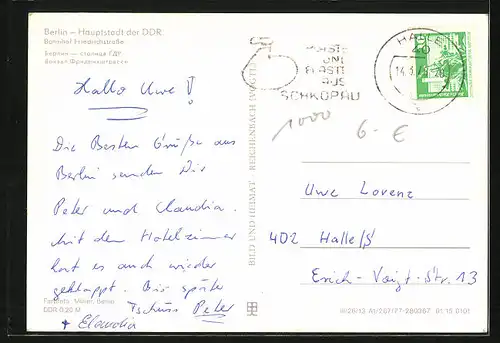 Berlin – Hauptstadt der DDR
Bahnhof Friedrichstraße
Берлин — столица ГДР
Вокзал Фридрихштрассе
Hallo Uwe!
Die Besten Grüße aus
Berlin senden Dir
Peter und Claudia.
Mit dem Hotelzimmer
hat es auch wieder
geklappt. Bis später
Tschüss Peter
+ Claudia
Farbfoto: Berlin
DDR 0,20 M
BILD UND HEIMAT REICHENBACH (VOGTL)
PLASTE
UND
ELASTE
AUS
SCHKOPAU
HALLE
1000
6-€
Uwe Lorenz
402 Halle/S
Erich-Voigt-Str. 13
A1/207/77-280367 01 15 0101